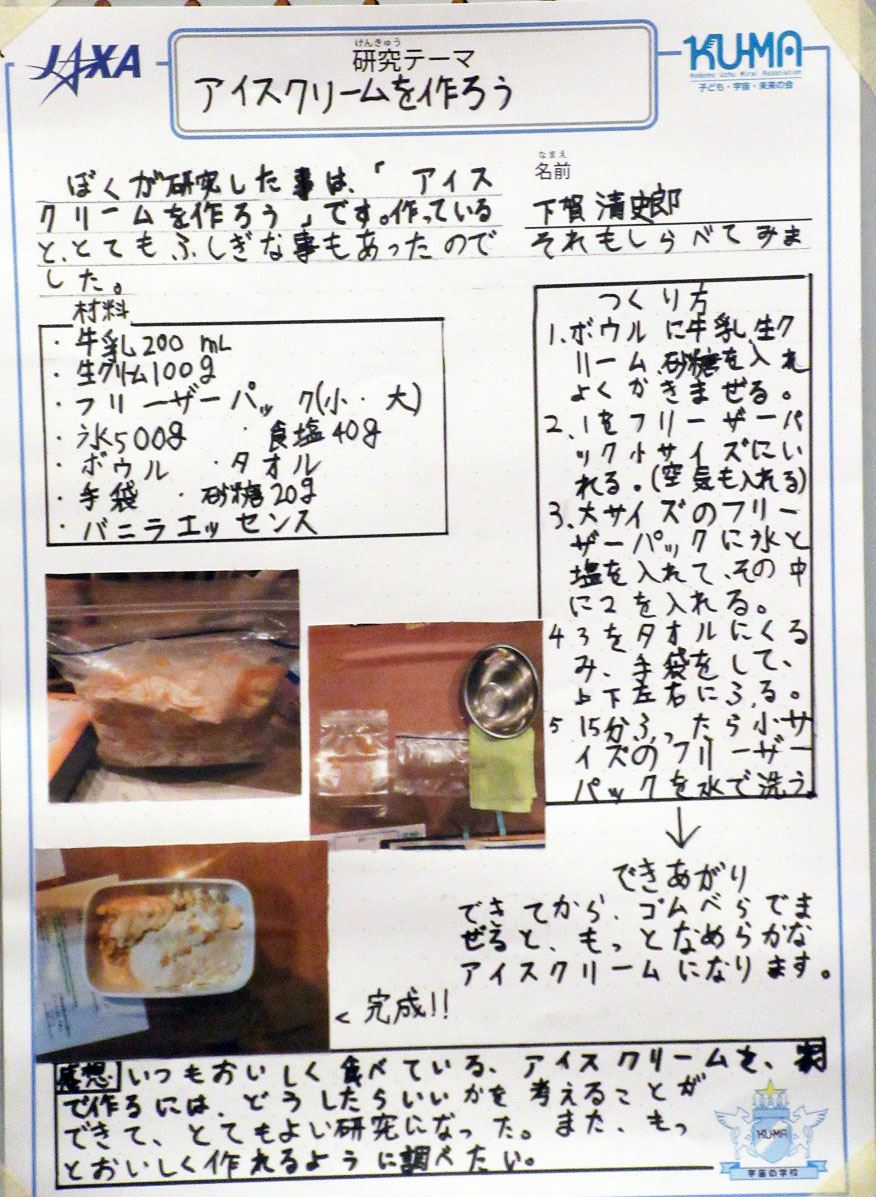 JAXA
けんきゅう
研究テーマ
アイスクリームを作ろう
KU-MA
Kodomo Uchu Mirai Association
子ども・宇宙・未来の会
ぼくが研究した事は、「アイス
クリームを作ろう」です。作っている
と、とてもふしぎな事もあったので
なまえ
名前
下賀 清史郎
それもしらべてみま
した。
材料
・牛乳200 mL
・生クリーム100g
・フリーザーパック(小・大)
・氷500g ・食塩40g
・ボウル ・タオル
・手袋 ・砂糖20g
・バニラエッセンス
つくり方
1、ボウルに牛乳、生ク
リーム、砂糖を入れ
よくかきまぜる。
2、1をフリーザーパ
ック小サイズにい
れる。(空気も入れる)
3、大サイズのフリー
ザーパックに氷と
塩を入れて、その中
に2を入れる。
4 3をタオルにくる
み、手袋をして、
上下左右にふる。
5 15分ふったら小サ
イズのフリーザー
パックを水で洗う。
↓
できあがり
できてから、ゴムべらでま
ぜると、もっとなめらかな
アイスクリームになります。
< 完成!!
感想 いつもおいしく食べている、アイスクリームを、家
で作るには、どうしたらいいかを考えることが
できて、とてもよい研究になった。また、もっ
とおいしく作れるように調べたい。
KU-MA
宇宙の学校